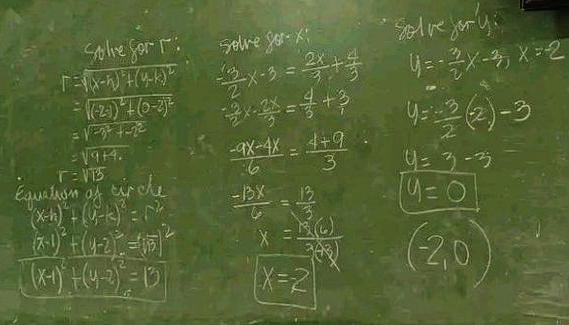 Solve for r:
r = √(x-h)² + (y-k)²
= √(-2-1)² + (0-2)²
= √-3² + -2²
= √9+4
r = √13
Equation of circle
(x-h)² + (y-k)² = r²
(x-1)² + (y-2)² = (√13)²
(x-1)² + (y-2)² = 13
Solve for x:
-3/2 x - 3 = 2x/3 + 4/3
-3/2 x - 2x/3 = 4/3 + 3
-9x-4x/6 = 4+9/3
-13x/6 = 13/3
x = 13(6)/3(-13)
x = -2
Solve for y:
y = -3/2 x - 3, x = -2
y = -3/2 (-2) - 3
y = 3 - 3
y = 0
(-2,0)